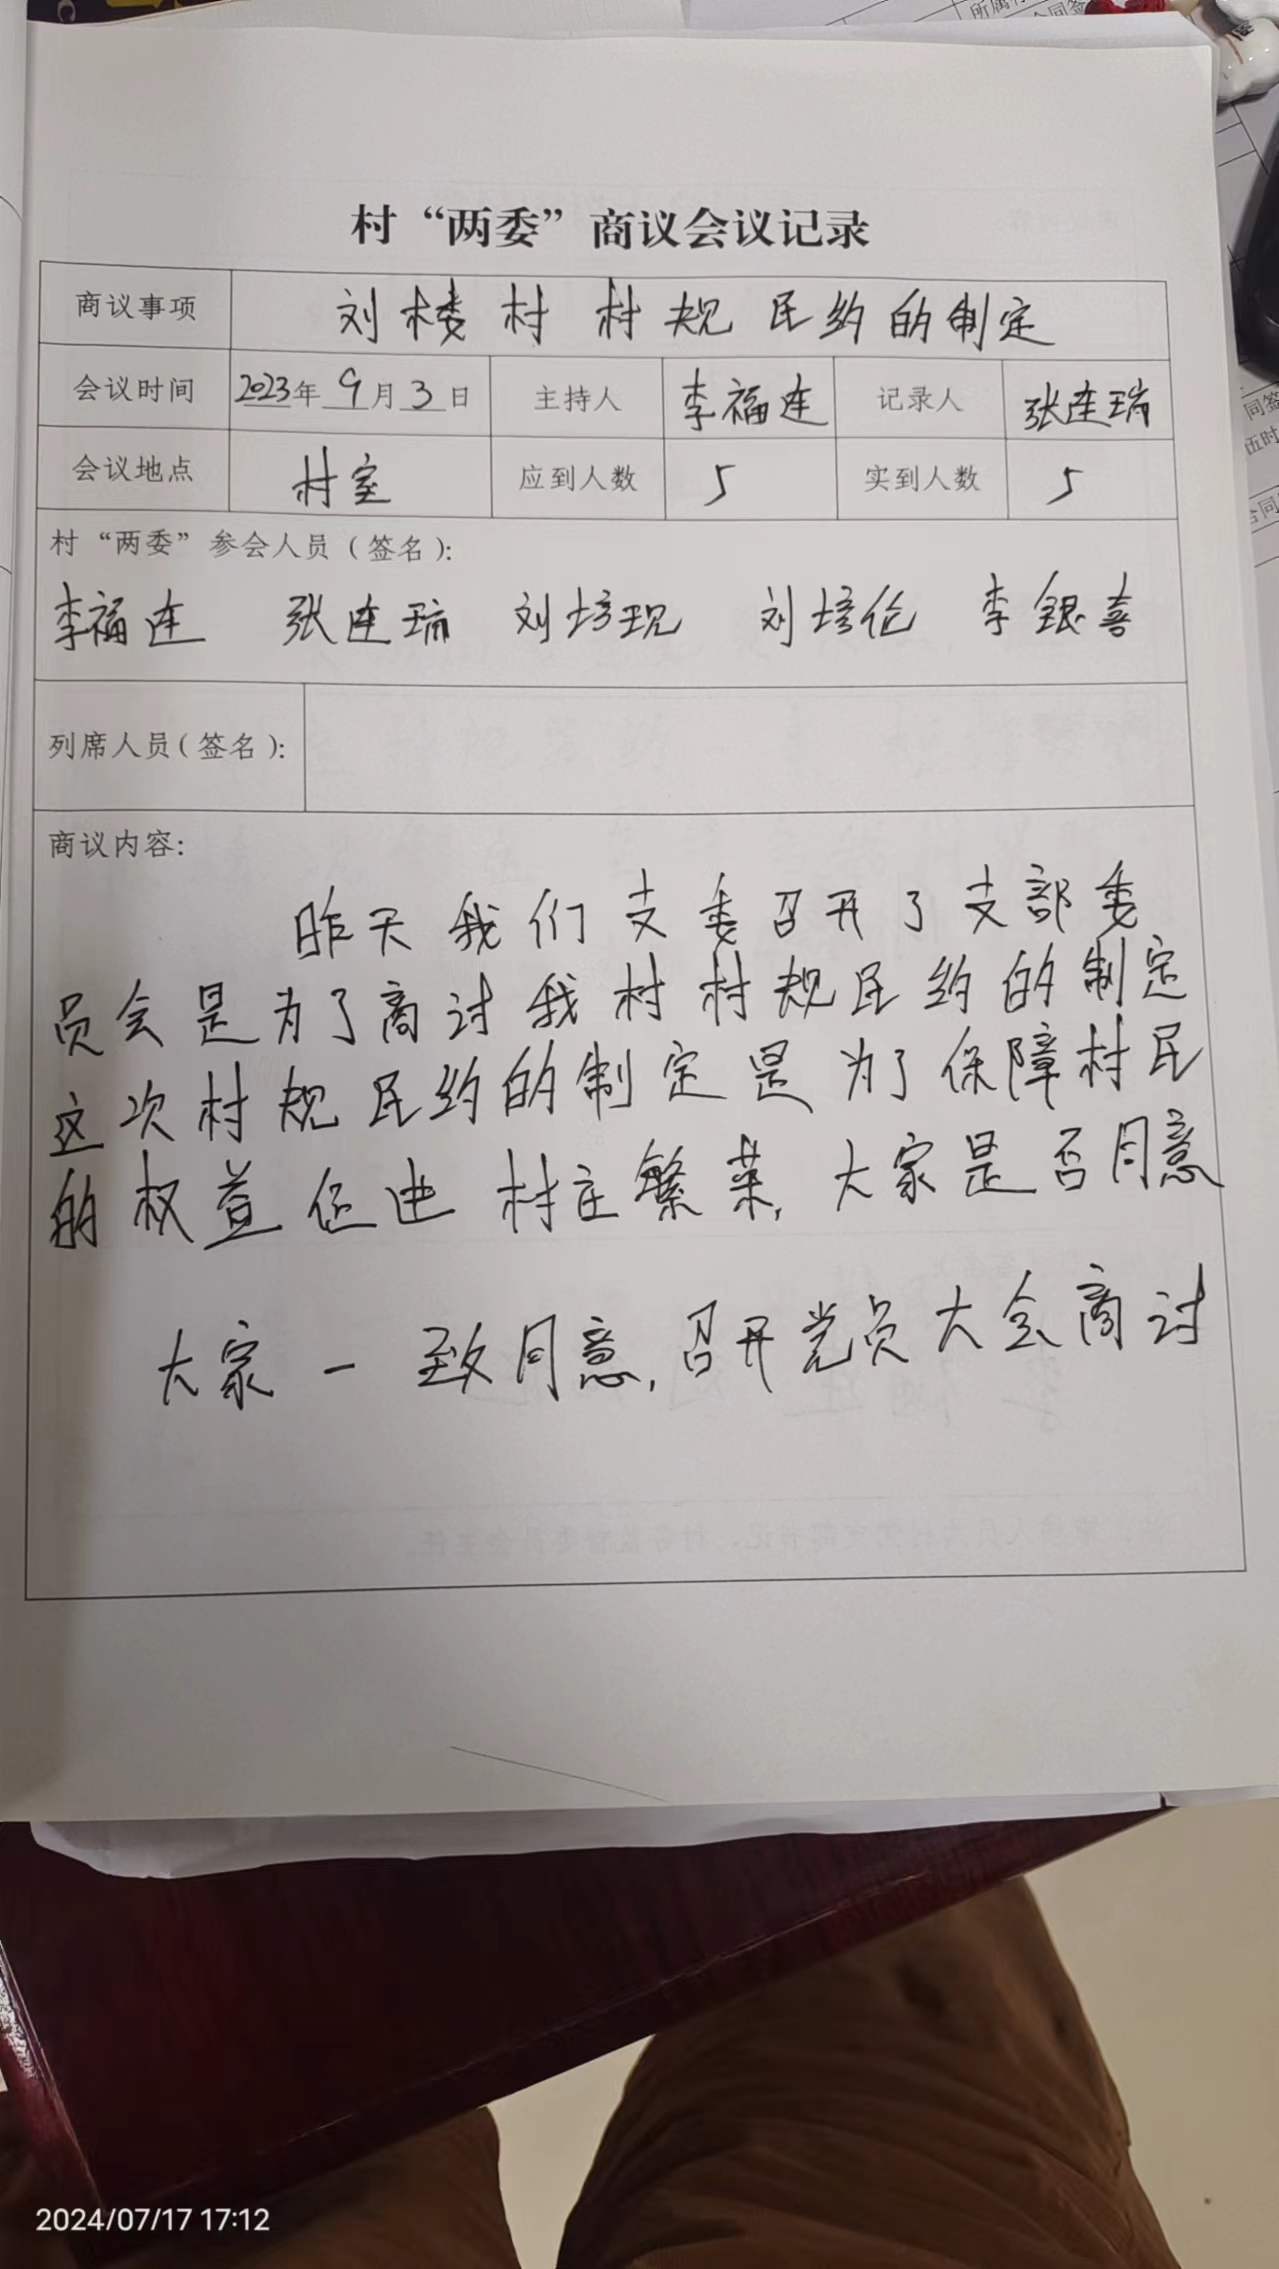 村“两委”商议会议记录
商议事项 刘楼村村规民约的制定
会议时间 2023年9月3日 主持人 李福连 记录人 张连瑞
会议地点 村室 应到人数 5 实到人数 5
村“两委”参会人员（签名）：
李福连 张连瑞 刘培现 刘培伦 李银喜
列席人员（签名）：
商议内容：
昨天我们支委召开了支部委
员会是为了商讨我村村规民约的制定
这次村规民约的制定是为了保障村民
的权益促进村庄繁荣，大家是否同意
大家一致同意，召开党员大会商讨
2024/07/17 17:12